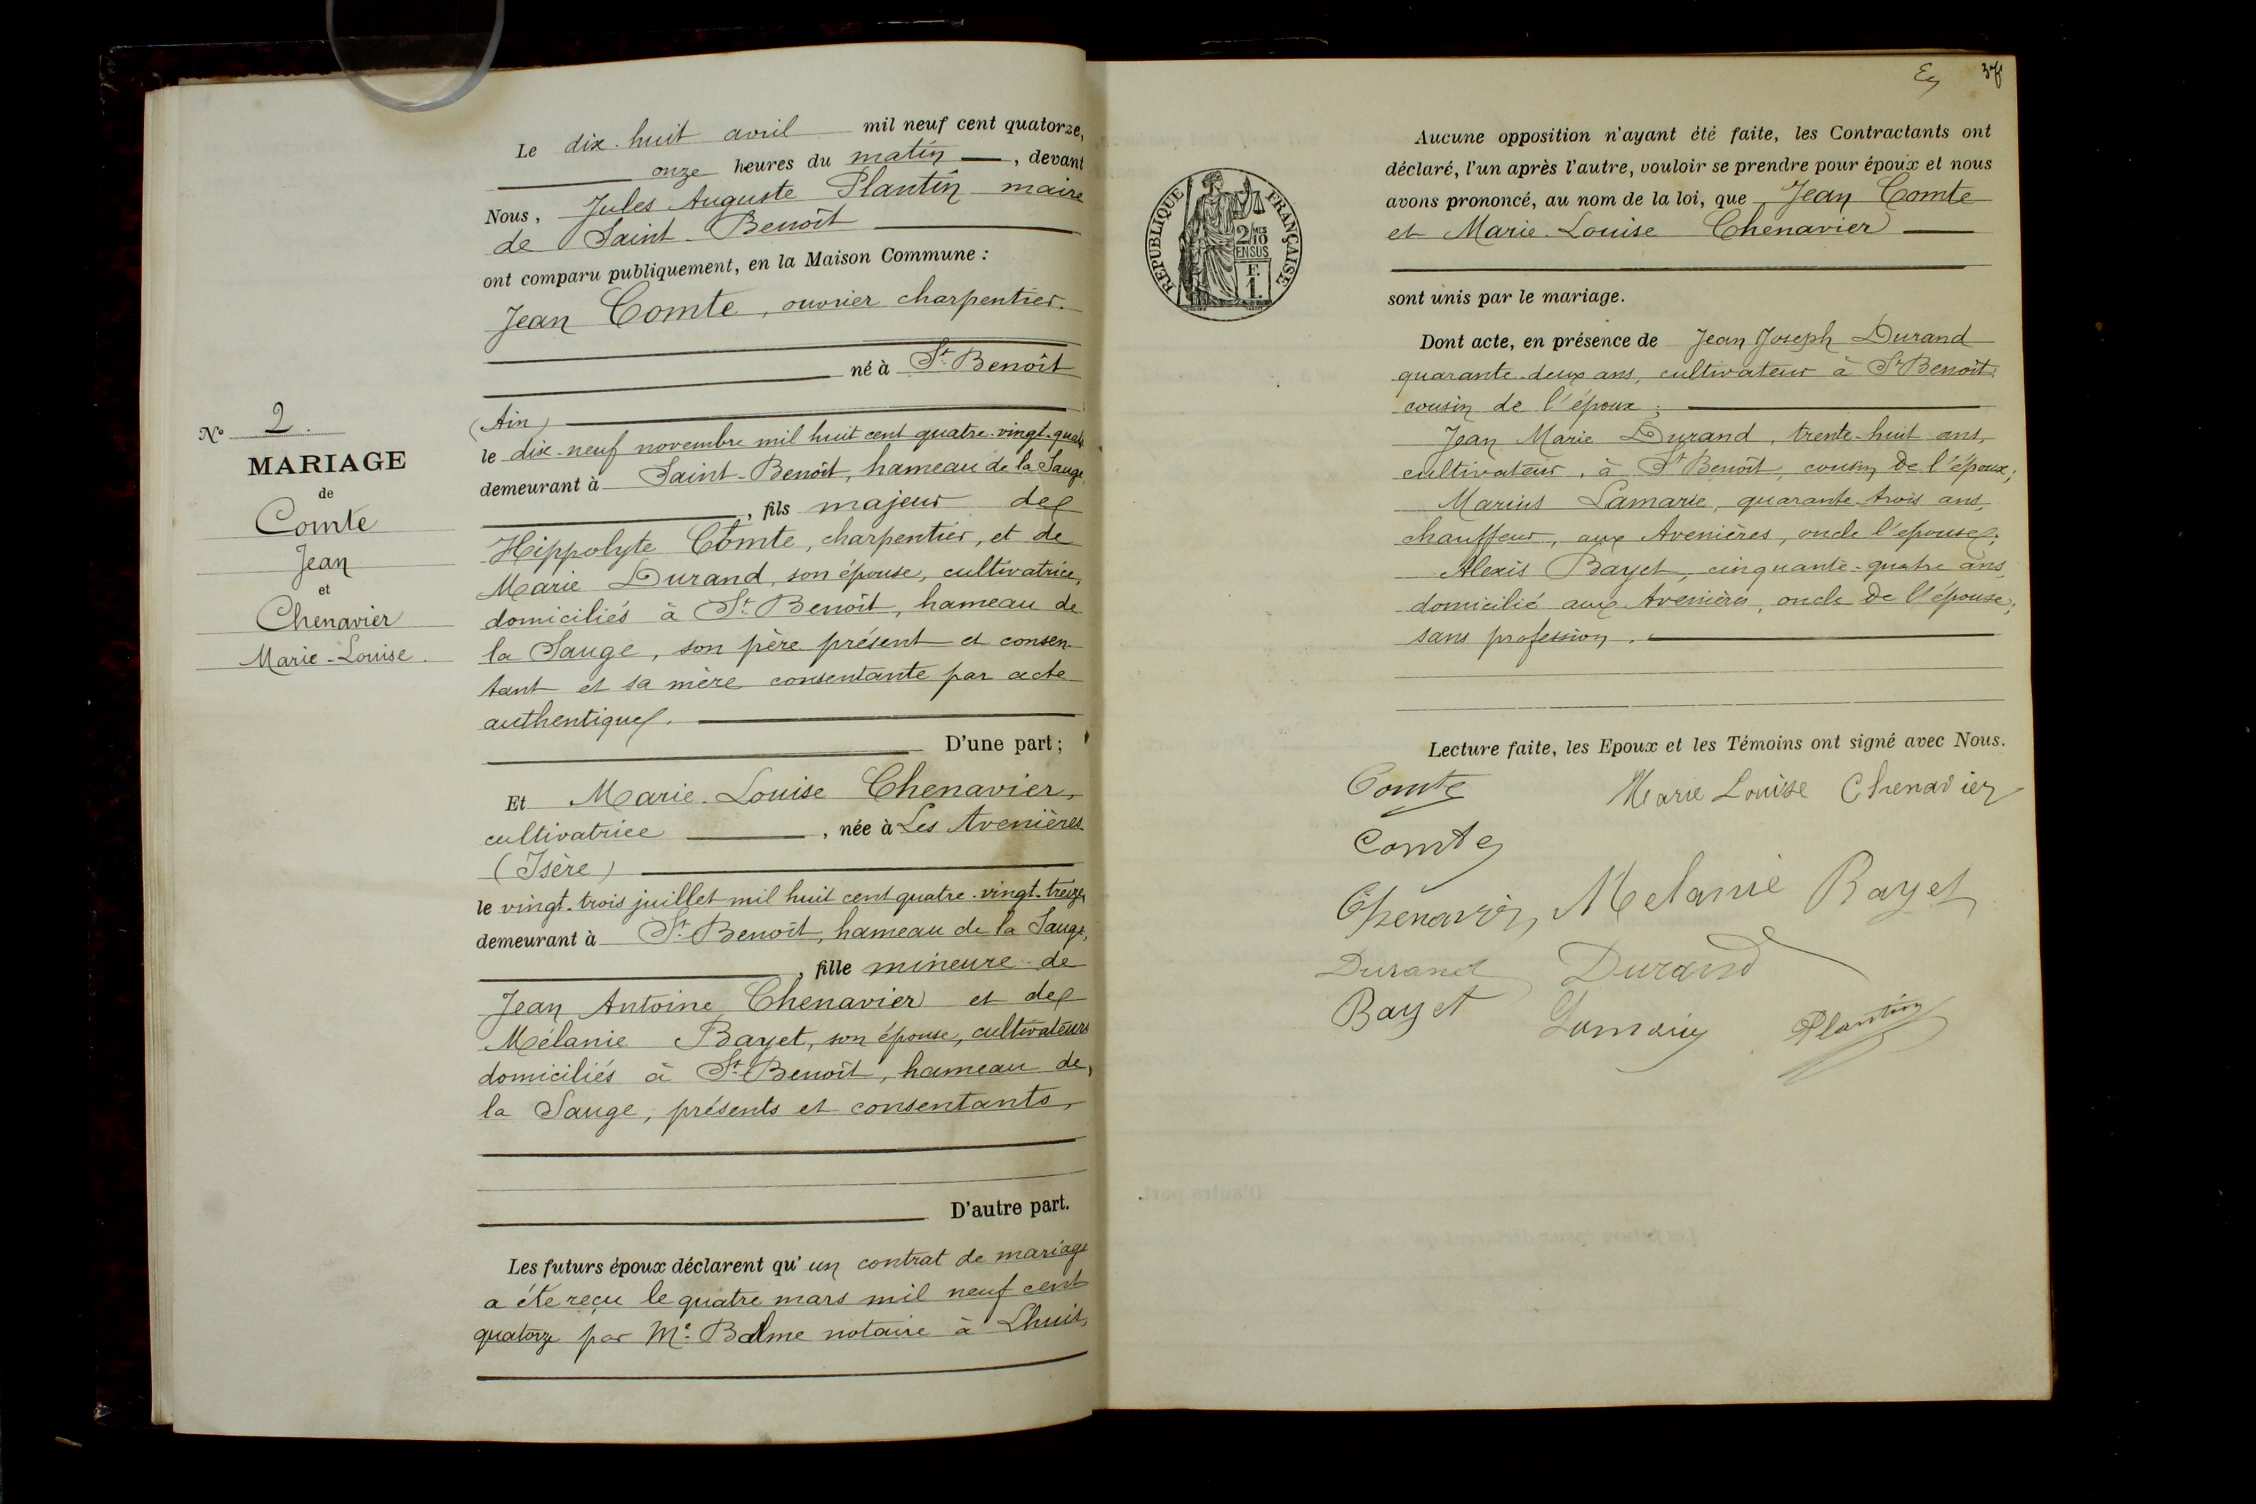 Le dix-huit avril mil neuf cent quatorze,
onze heures du matin, devant
Nous, Jules Auguste Plantin maire
de Saint-Benoît
ont comparu publiquement, en la Maison Commune :
Jean Comte, ouvrier charpentier.
né à St Benoît
(Ain)
le dix-neuf novembre mil huit cent quatre-vingt-quatre
demeurant à Saint-Benoît, hameau de la Sauge,
, fils majeur de
Hippolyte Comte, charpentier, et de
Marie Durand, son épouse, cultivatrice,
domiciliés à St Benoît, hameau de
la Sauge, son père présent et consen-
tant et sa mère consentante par acte
authentique.
D'une part ;
Et Marie-Louise Chenavier,
cultivatrice, née à Les Avenières
(Isère)
le vingt-trois juillet mil huit cent quatre-vingt-treize
demeurant à St Benoît, hameau de la Sauge,
, fille mineure de
Jean Antoine Chenavier et de
Mélanie Bayet, son épouse, cultivateurs
domiciliés à St Benoît, hameau de
la Sauge, présents et consentants,
D'autre part.
Les futurs époux déclarent qu'un contrat de mariage
a été reçu le quatre mars mil neuf cent
quatorze par Me Balme notaire à Lhuis,
No 2.
MARIAGE
de
Comte
Jean
et
Chenavier
Marie-Louise.
37
Aucune opposition n'ayant été faite, les Contractants ont
déclaré, l'un après l'autre, vouloir se prendre pour époux et nous
avons prononcé, au nom de la loi, que Jean Comte
et Marie-Louise Chenavier
sont unis par le mariage.
Dont acte, en présence de Jean Joseph Durand
quarante-deux ans, cultivateur à St Benoît,
cousin de l'époux ;
Jean Marie Durand, trente-huit ans,
cultivateur, à St Benoît, cousin de l'époux ;
Marius Lamarie, quarante-trois ans,
chauffeur, aux Avenières, oncle l'epouse ;
Alexis Bayet, cinquante-quatre ans,
domicilié aux Avenières, oncle de l'épouse ;
sans profession.
Lecture faite, les Epoux et les Témoins ont signé avec Nous.
Comte Marie Louise Chenavier
Comte
Chenavier Melanie Bayet
Durand Durand
Bayet Plantin
REPUBLIQUE FRANÇAISE
2/10 EN SUS
F.
1.